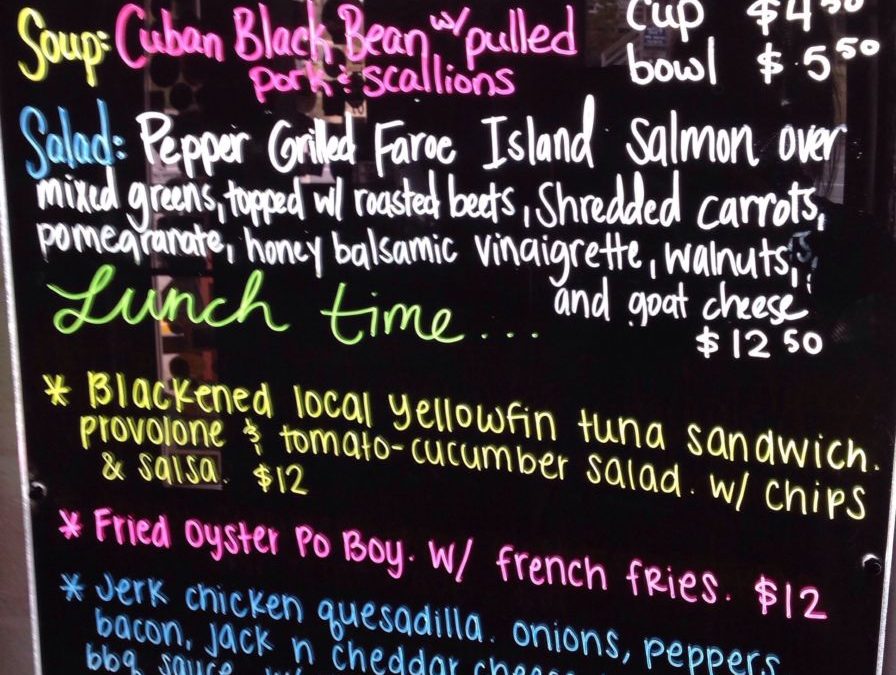 Soup: Cuban Black Bean w/ pulled cup $4 50
pork & scallions bowl $ 5 50
Salad: Pepper Grilled Faroe Island Salmon over
mixed greens, topped w/ roasted beets, Shredded carrots,
pomegranate, honey balsamic vinaigrette, walnuts,
and goat cheese
Lunch time...
$12 50
* Blackened local yellowfin tuna sandwich.
provolone & tomato-cucumber salad. w/ chips
& salsa. $12
* Fried Oyster Po Boy. w/ french fries. $12
* Jerk chicken quesadilla. onions, peppers
bacon, jack n cheddar cheese
bbq sauce